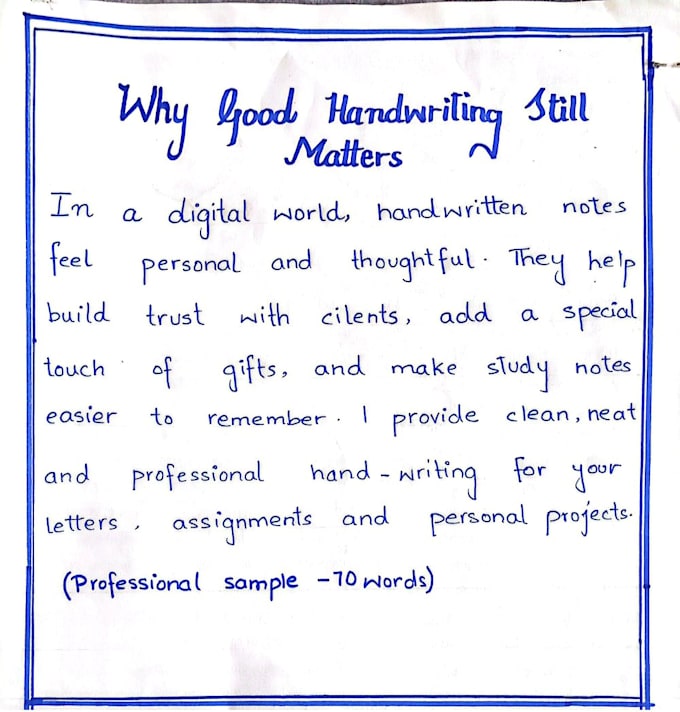 Why Good Handwriting Still
Matters
In a digital world, handwritten notes
feel personal and thoughtful. They help
build trust with cilents, add a special
touch of gifts, and make study notes
easier to remember. I provide clean, neat
and professional hand-writing for your
letters, assignments and personal projects.
(Professional sample -70 words)